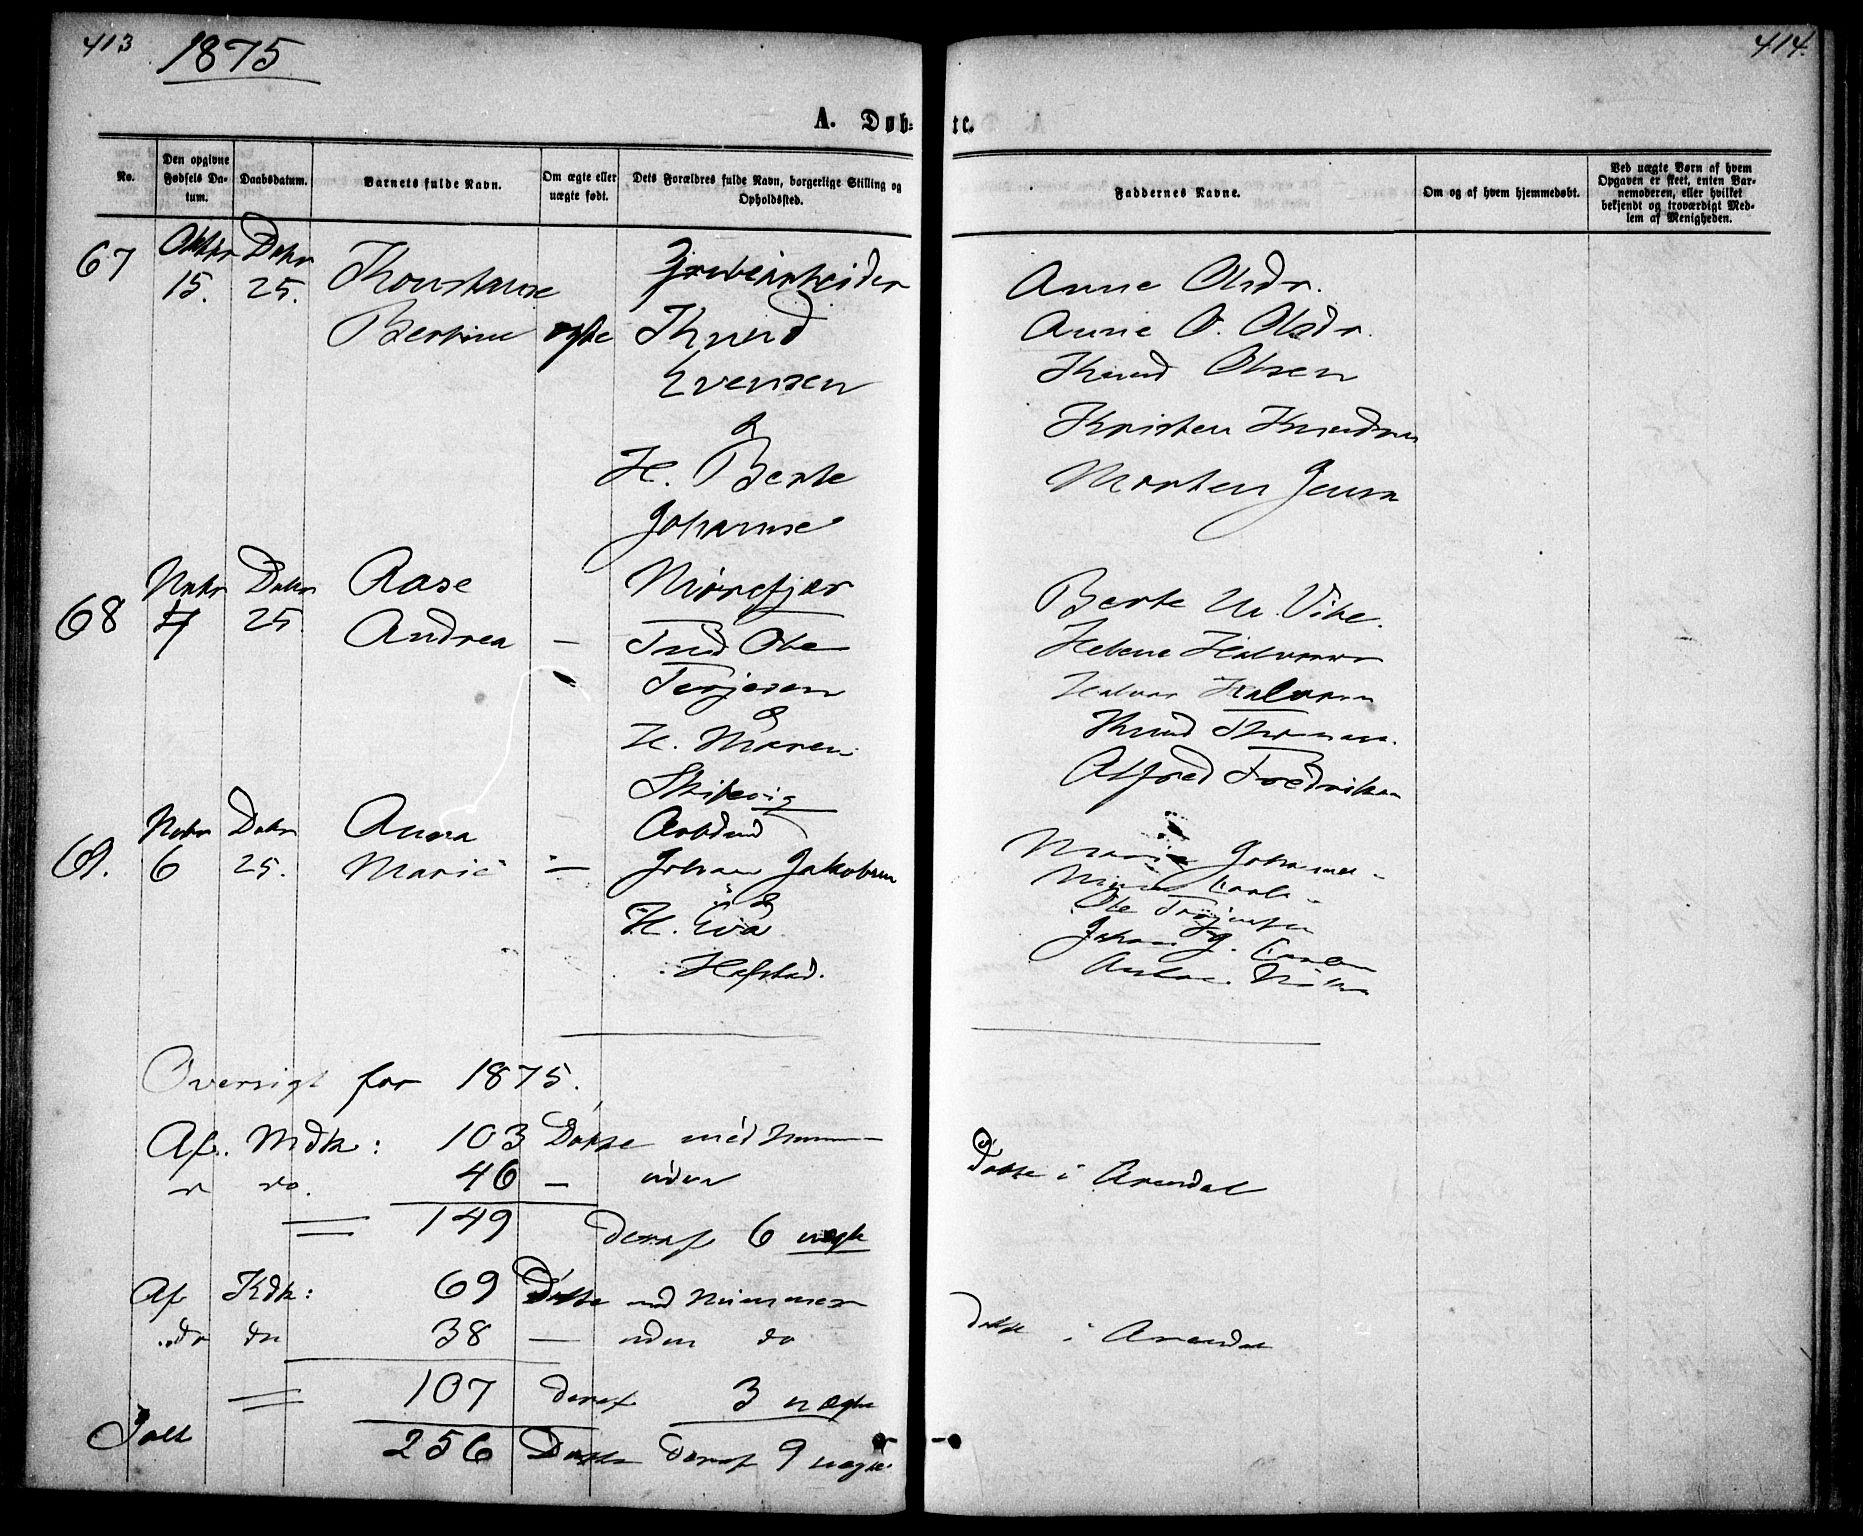 413
1875
A. Døb-
No.
Den opgivne Fødsels Da-
tum.
Daabsdatum.
Barnets fulde Navn.
Om ægte eller
uægte født.
Dets Forældres fulde Navn, borgerlige Stilling og
Opholdssted.
67
Oktbr Debr
15. 25.
Konstanse
Bertine ægte
Grubearbeider
Knud
Evensen
&
H. Berte
Johanne
Mørefjær
68
Nvbr Debr
4 25
Aase
Andrea —
Snd Ole
Terjesen
&
H. Maren
Skilevig
69.
Nvbr Debr
6 25.
Anna
Marie —
Arbdmd
Johan Jakobsen
&
H. Eva
Hafstad.
Oversigt for 1875.
Af. Mdk: 103 Døbte med
do. 46 — uden
149 deraf 6 uægte
Af Kdk: 69 Døbte med Nummer
do do 38 — uden do
107 deraf 3 uægte
Ialt 256 Døbte deraf 9 uægte
414.
te.
Faddernes Navne.
Om og af hvem hjemmedøbt.
Ved uægte Børn af hvem
Opgaven er skeet, enten Bar-
nemoderen, eller hvilket
bekjendt og troværdigt Med-
lem af Menigheden.
Anne Olsdr.
Anne O. Olsdr.
Knud Olsen
Kristen Knudsen
Morten Jensn
Berte M. Vike.
Helene Halvorsn
Halvor Halvorsn
Knud
Alfred Fredriksen
Marie
Ole Terjesen
Johan J.
Døbte i Arendal
Døbte i Arendal